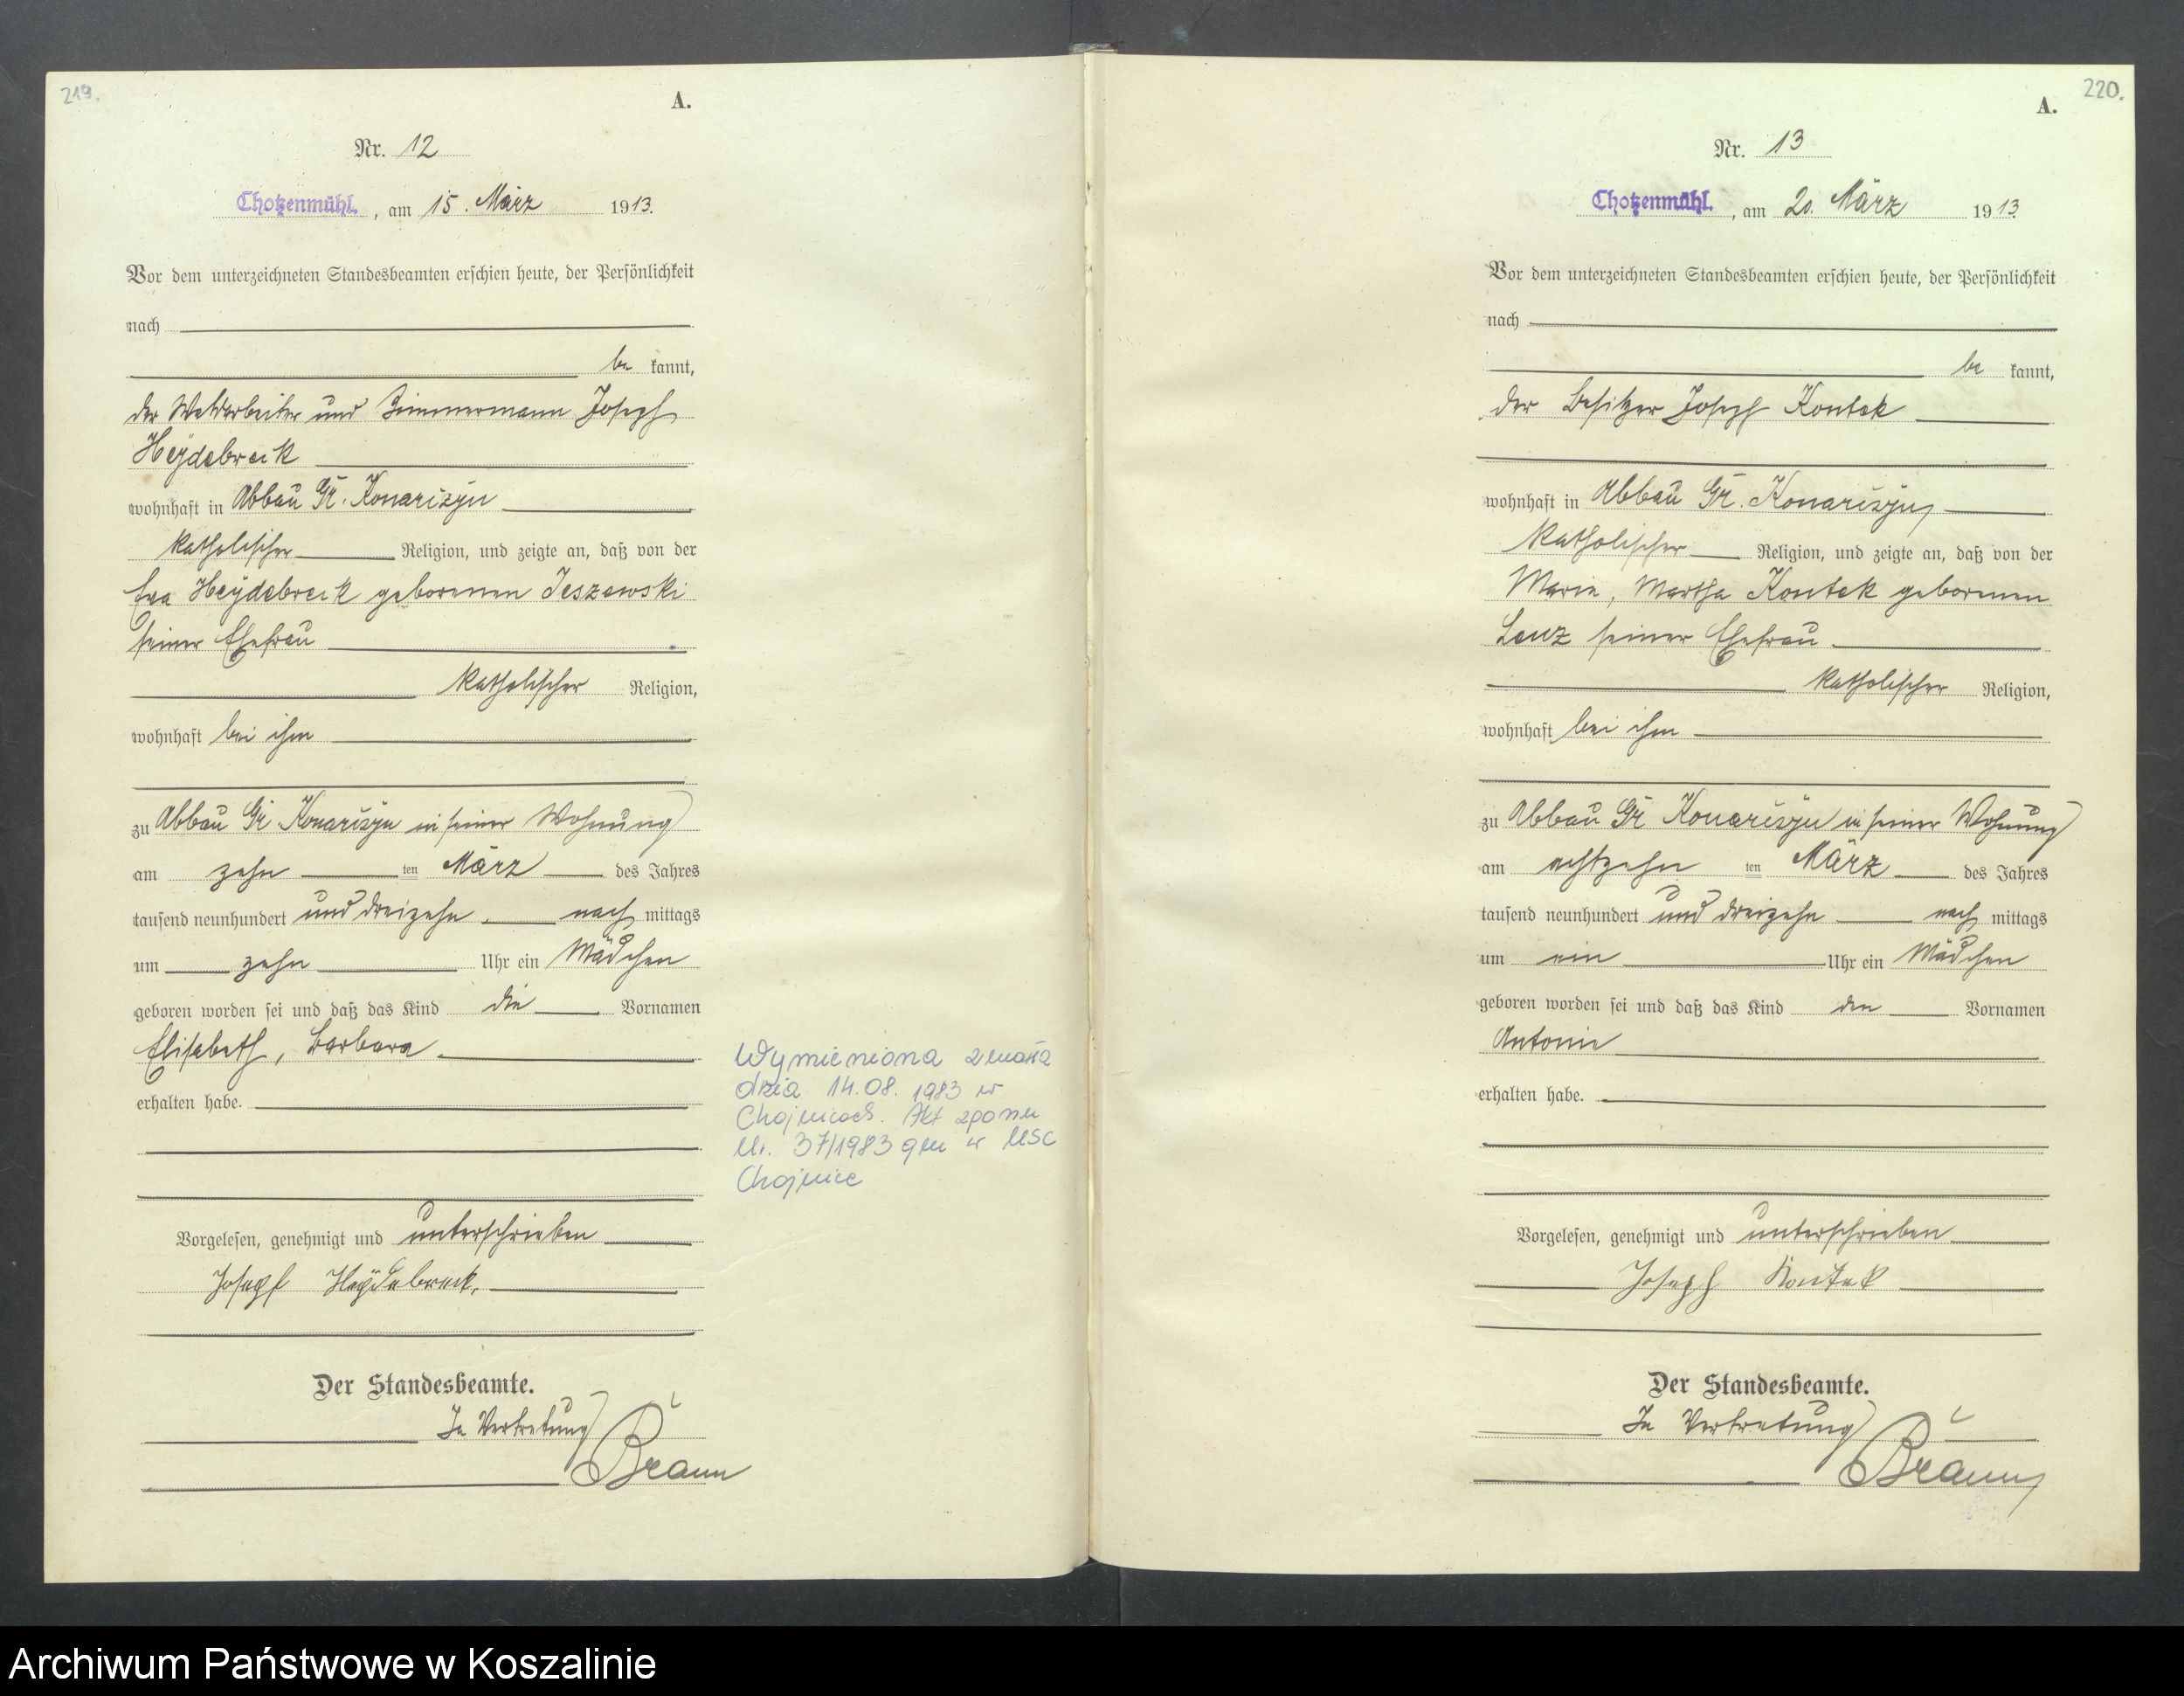 219.
A.
Nr. 12
Chotzenmühl. , am 15. März 1913.
Vor dem unterzeichneten Standesbeamten erschien heute, der Persönlichkeit
nach
be kannt,
der Waldarbeiter und Zimmermann Joseph
Heydebreck
wohnhaft in Abbau Gr. Konarszyn
katholischer Religion, und zeigte an, daß von der
Eva Heydebreck geborenen Jeszewski
seiner Ehefrau
katholischer Religion,
wohnhaft bei ihm
zu Abbau Gr Konarszyn in seiner Wohnung
am zehn ten März des Jahres
tausend neunhundert und dreizehn nach mittags
um zehn Uhr ein Mädchen
geboren worden sei und daß das Kind die Vornamen
Elisabeth, Barbara
erhalten habe.
Vorgelesen, genehmigt und unterschrieben
Joseph Heydebreck.
Der Standesbeamte.
In Vertretung
Braun
Wymieniona zmarła
dnia 14.08.1983 w
Chojnicach. Akt zgonu
Nr. 37/1983 w USC
Chojnice
220.
A.
Nr. 13
Chotzenmühl. , am 20. März 1913
Vor dem unterzeichneten Standesbeamten erschien heute, der Persönlichkeit
nach
be kannt,
der Besitzer Joseph Kontek
wohnhaft in Abbau Gr. Konarszyn
katholischer Religion, und zeigte an, daß von der
Maria, Martha Kontek geborenen
seiner Ehefrau
katholischer Religion,
wohnhaft bei ihm
zu Abbau Gr Konarszyn in seiner Wohnung
am achtzehn ten März des Jahres
tausend neunhundert und dreizehn nach mittags
um ein Uhr ein Mädchen
geboren worden sei und daß das Kind den Vornamen
Antonie
erhalten habe.
Vorgelesen, genehmigt und unterschrieben
Joseph Kontek
Der Standesbeamte.
In Vertretung
Braun
Archiwum Państwowe w Koszalinie